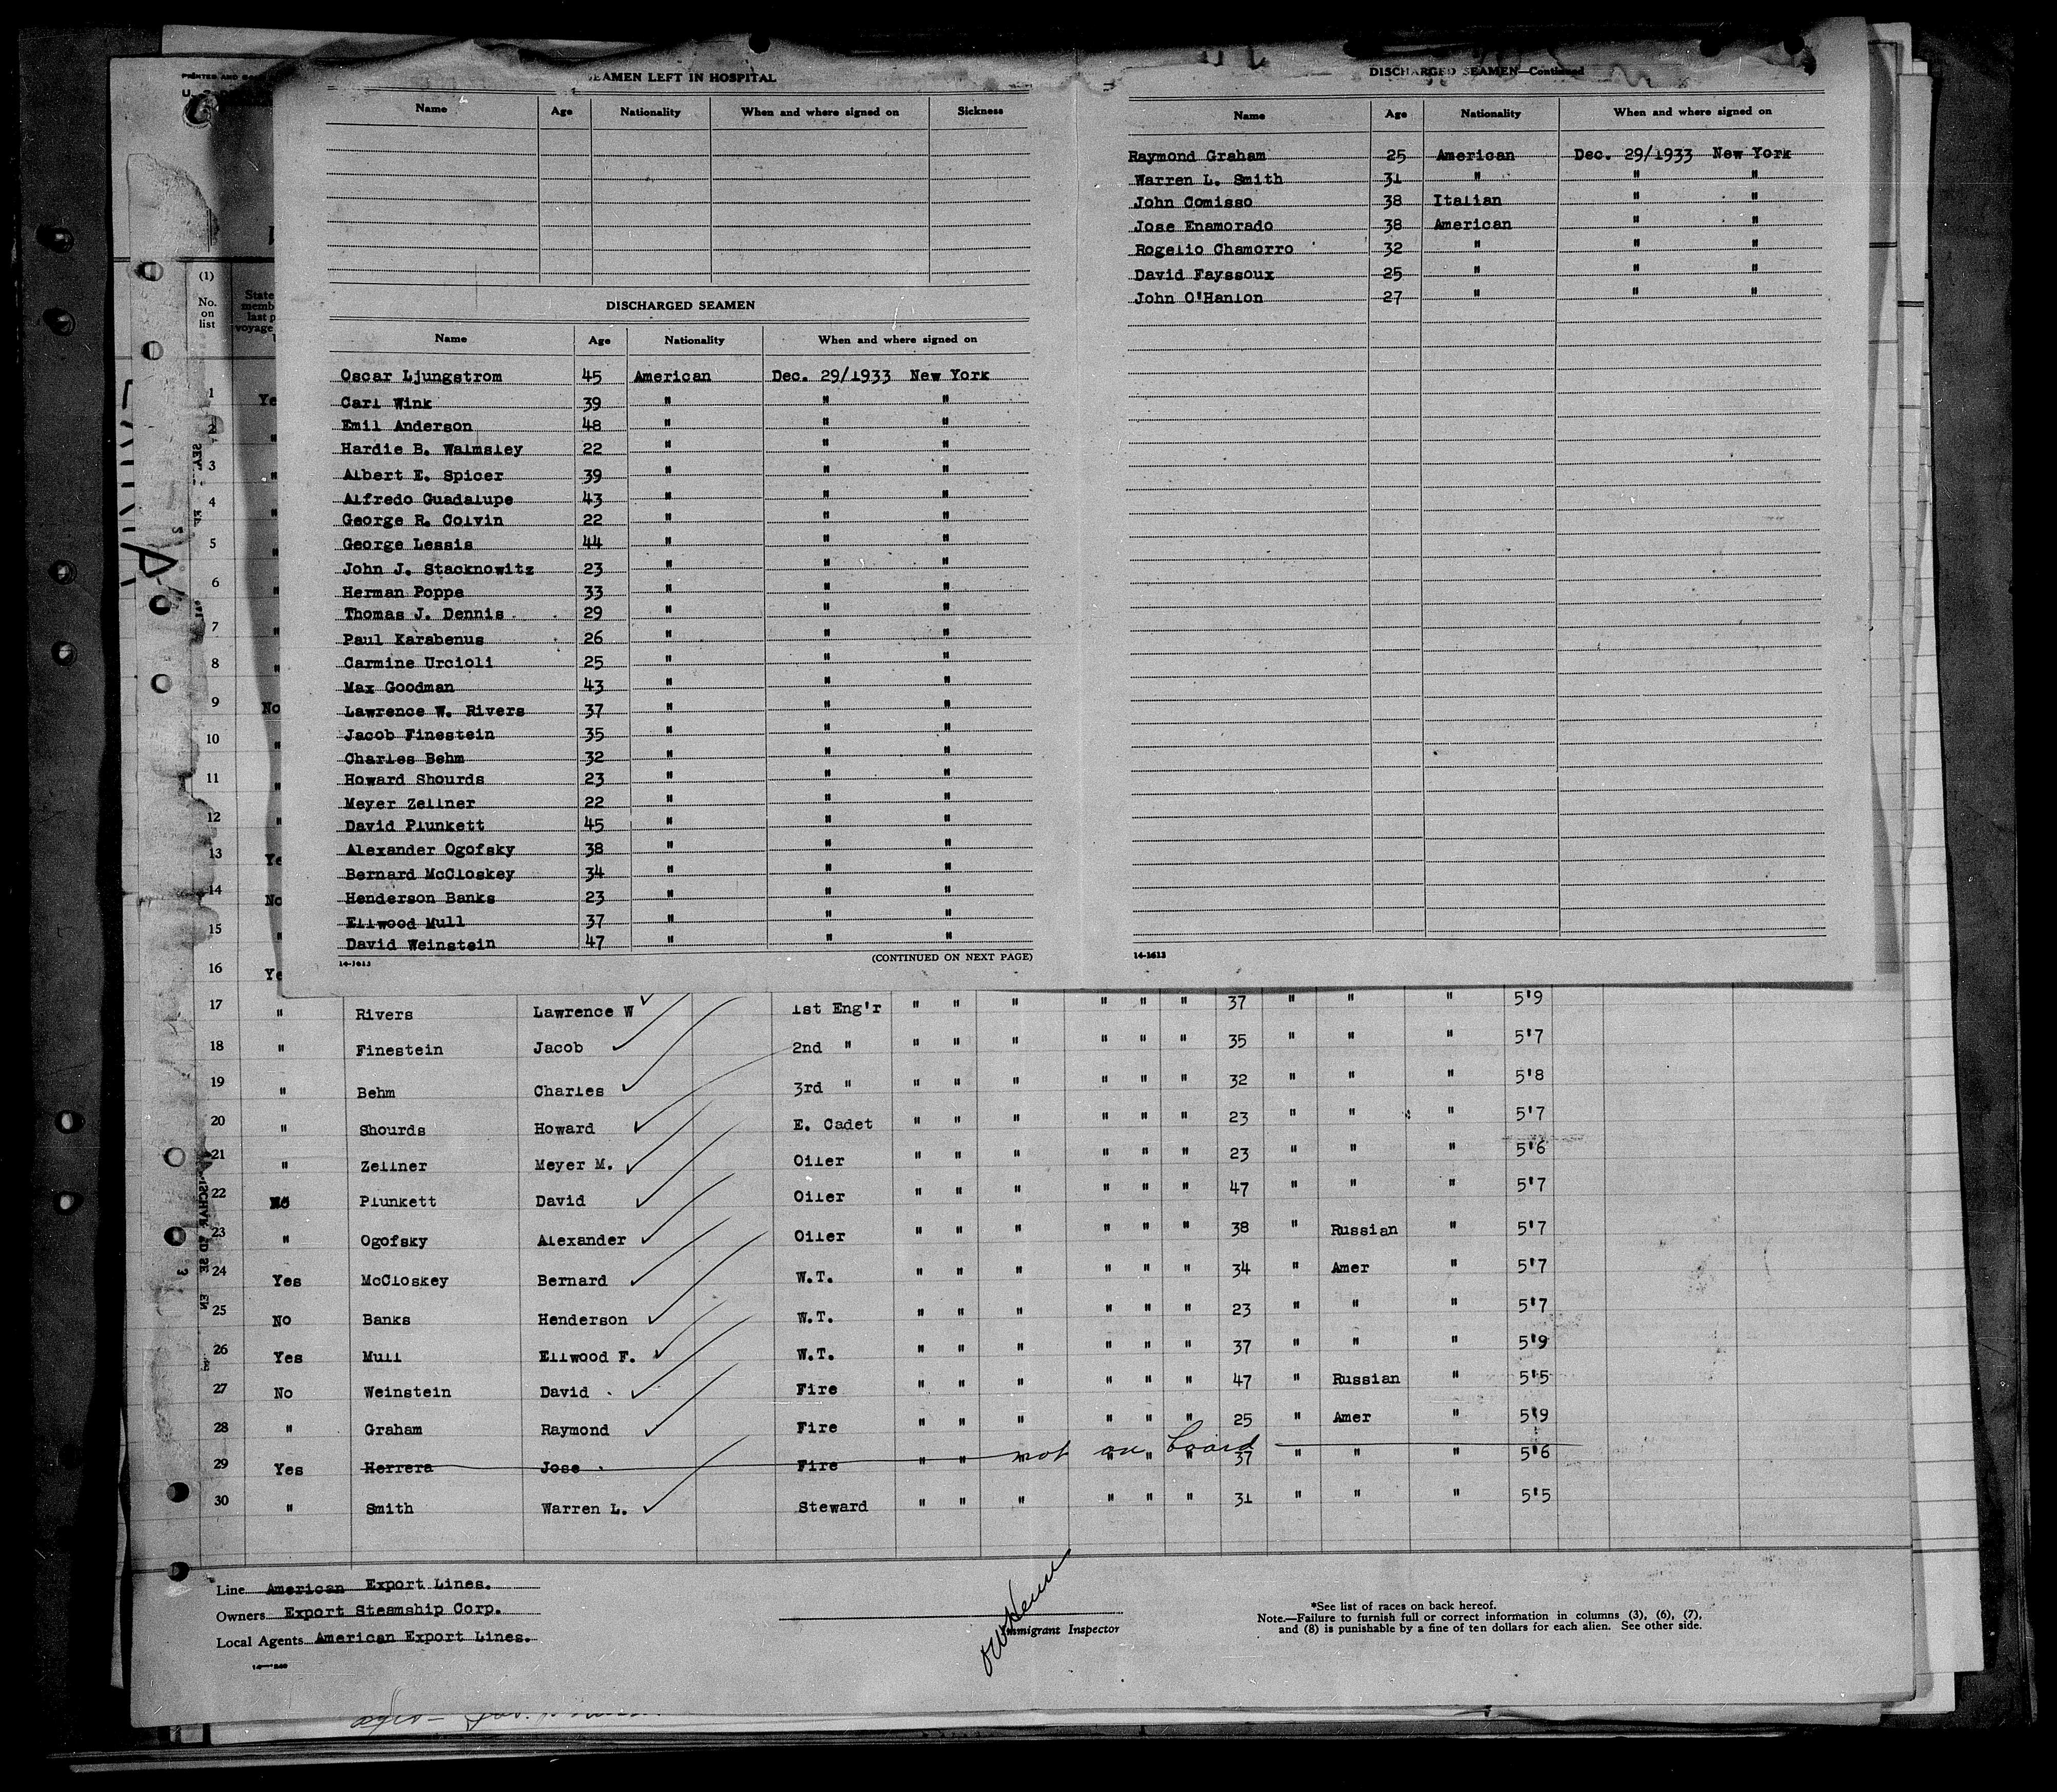 SEAMEN LEFT IN HOSPITAL
Name Age Nationality When and where signed on Sickness
DISCHARGED SEAMEN
Name Age Nationality When and where signed on
Oscar Ljungstrom 45 American Dec. 29/1933 New York
Carl Wink 39 " " "
Emil Anderson 48 " " "
Hardie B. Walmsley 22 " " "
Albert E. Spicer 39 " " "
Alfredo Guadalupe 43 " " "
George R. Colvin 22 " " "
George Lessis 44 " " "
John J. Stacknowitz 23 " " "
Herman Poppe 33 " " "
Thomas J. Dennis 29 " " "
Paul Karabenus 26 " " "
Carmine Urcioli 25 " " "
Max Goodman 43 " " "
Lawrence W. Rivers 37 " " "
Jacob Finestein 35 " " "
Charles Behm 32 " " "
Howard Shourds 23 " " "
Meyer Zellner 22 " " "
David Plunkett 45 " " "
Alexander Ogofsky 38 " " "
Bernard McCloskey 34 " " "
Henderson Banks 23 " " "
Ellwood Mull 37 " " "
David Weinstein 47 " " "
14-1613 (CONTINUED ON NEXT PAGE)
DISCHARGED SEAMEN—Continued
Name Age Nationality When and where signed on
Raymond Graham 25 American Dec. 29/1933 New York
Warren L. Smith 31 " " "
John Comisso 38 Italian " "
Jose Enamorado 38 American " "
Rogelio Chamorro 32 " " "
David Fayssoux 25 " " "
John O'Hanlon 27 " " "
14-1613
(1)
No. on list
1
2
3
4
5
6
7
8
9 No
10 "
11 "
12 "
13
14 No
15 "
16
17 " Rivers Lawrence W 1st Eng'r " " " " " " 37 " " " 5'9
18 " Finestein Jacob 2nd " " " " " " " 35 " " " 5'7
19 " Behm Charles 3rd " " " " " " " 32 " " " 5'8
20 " Shourds Howard E. Cadet " " " " " " 23 " " " 5'7
21 " Zellner Meyer M. Oiler " " " " " " 23 " " " 5'6
22 No Plunkett David Oiler " " " " " " 47 " " " 5'7
23 " Ogofsky Alexander Oiler " " " " " " 38 " Russian " 5'7
24 Yes McCloskey Bernard W.T. " " " " " " 34 " Amer " 5'7
25 No Banks Henderson W.T. " " " " " " 23 " " " 5'7
26 Yes Mull Ellwood F. W.T. " " " " " " 37 " " " 5'9
27 No Weinstein David Fire " " " " " " 47 " Russian " 5'5
28 " Graham Raymond Fire " " " " " " 25 " Amer " 5'9
not on board
29 Yes Herrera Jose Fire " " " " " " 37 " " " 5'6
30 " Smith Warren L. Steward " " " " " " 31 " " " 5'5
Line American Export Lines.
Owners Export Steamship Corp.
Local Agents American Export Lines.
Immigrant Inspector
*See list of races on back hereof.
Note.—Failure to furnish full or correct information in columns (3), (6), (7),
and (8) is punishable by a fine of ten dollars for each alien. See other side.